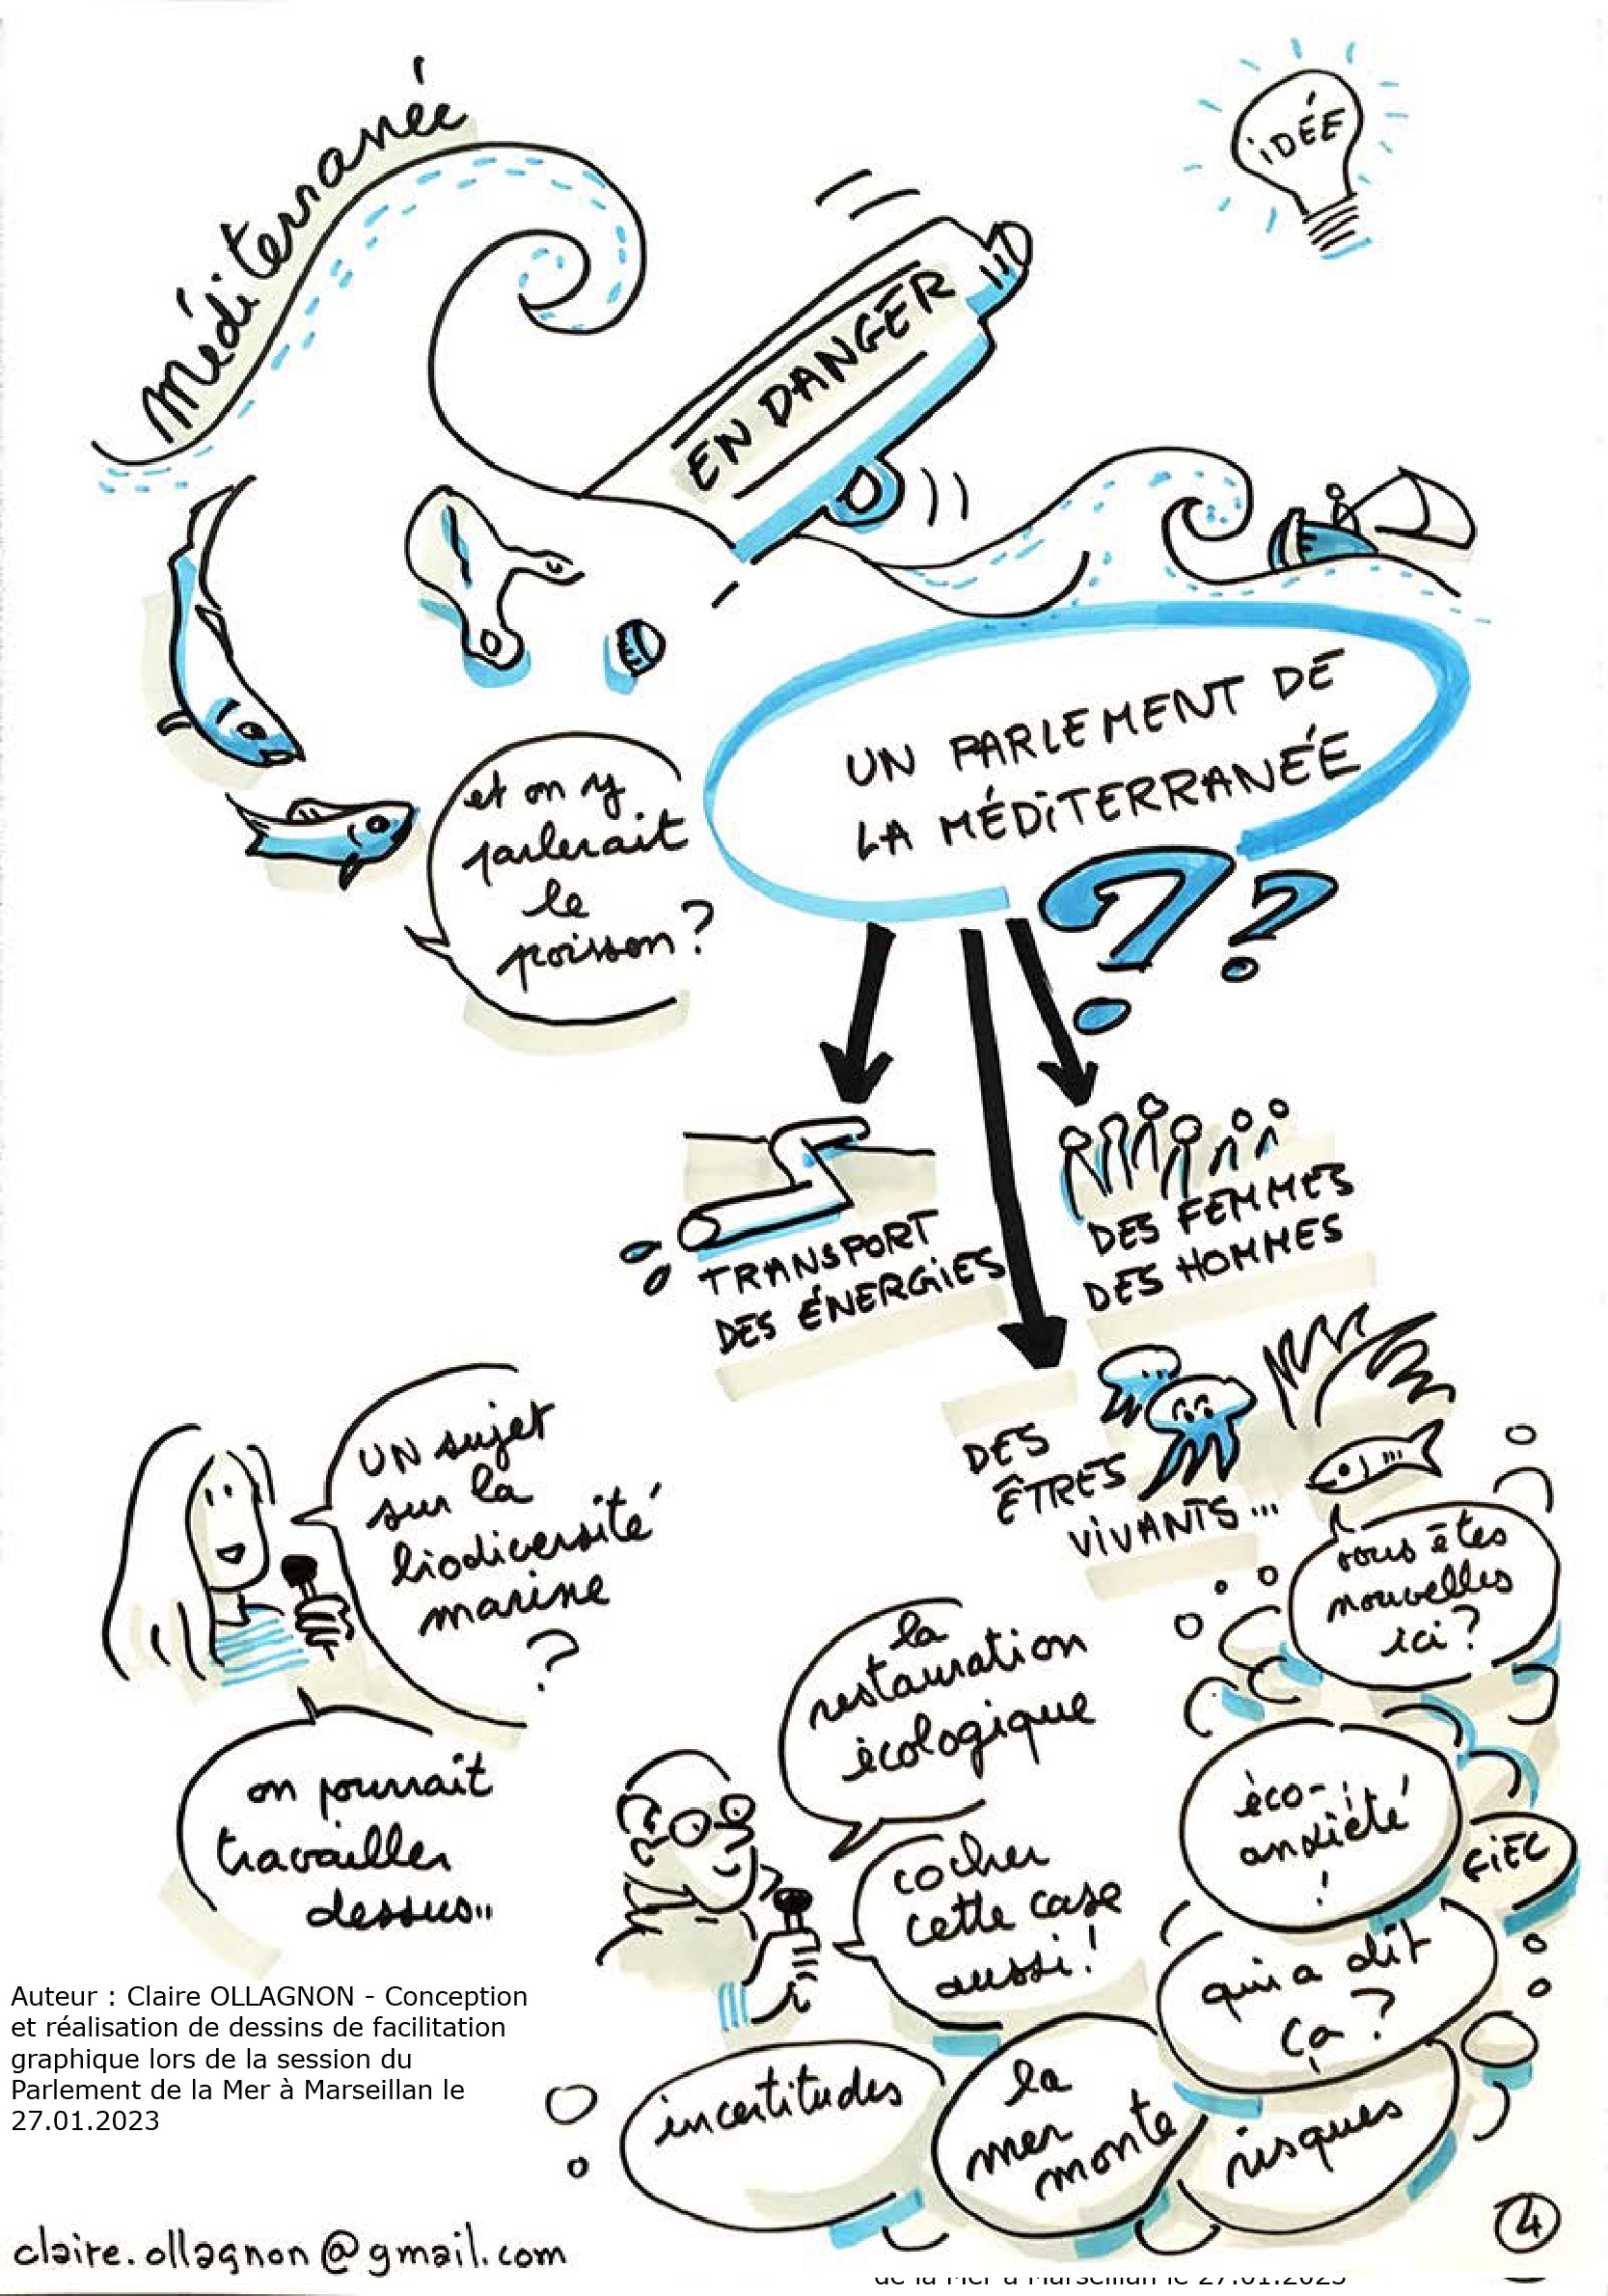 méditerranée
iDÉE
EN DANGER
UN PARLEMENT DE
LA MÉDiTERRANÉE
??
et on y
parlerait
le
poisson ?
TRANSPORT
DES ÉNERGiES
DES FEMMES
DES HOMMES
DES
ÊTRES
ViVANTS ...
UN sujet
sur la
biodiversité
marine
?
on pourrait
travailler
dessus...
vous êtes
nouvelles
ici ?
la
restauration
écologique
cocher
cette case
aussi !
éco-
anxiété
!
GiEC
qui a dit
ça ?
incertitudes
la
mer
monte
risques
Auteur : Claire OLLAGNON - Conception
et réalisation de dessins de facilitation
graphique lors de la session du
Parlement de la Mer à Marseillan le
27.01.2023
claire.ollagnon@gmail.com
4
de la Mer à Marseillan le 27.01.2023